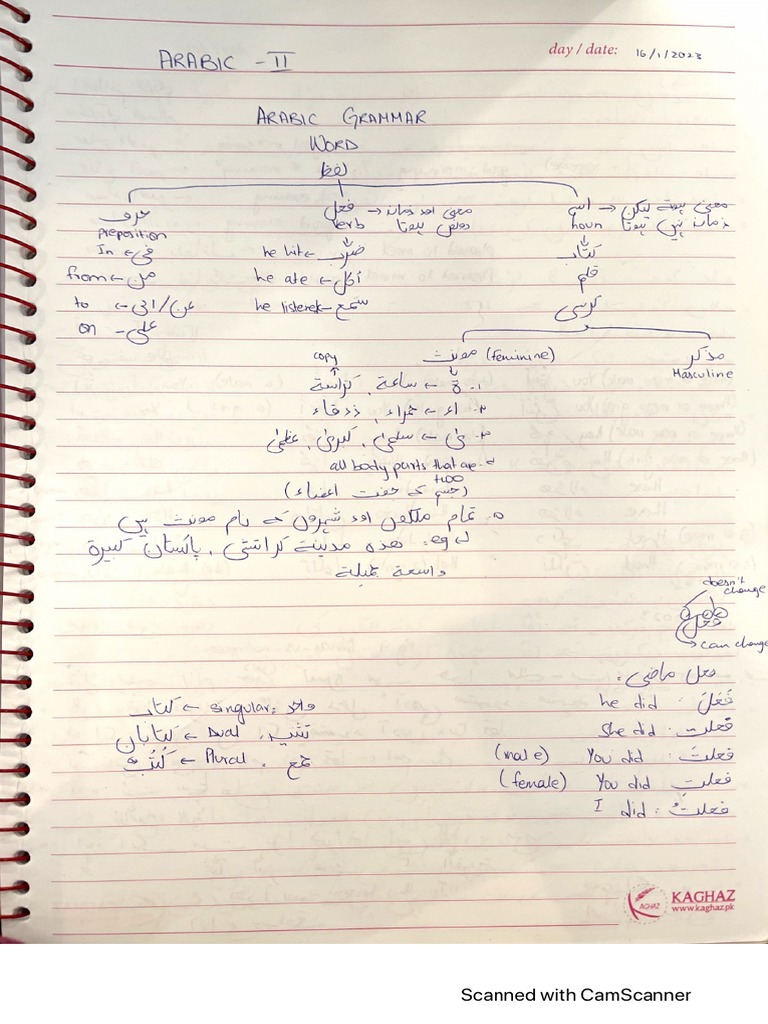 ARABIC - II
day / date: 16/1/2023
ARABIC GRAMMAR
WORD
لفظ
اسم → معنی ہوتے لیکن
noun زمانہ نہیں ہوتا
فعل → معنی اور زمانہ
verb دونوں ہوتا
حرف
preposition
كتاب
قلم
كرسي
ضرب → he hit
أكل → he ate
سمع → he listened
في → In
من → from
عن/الى → to
على - on
مذكر
Masculine
مونث (feminine)
copy
۱. ة → ساعة، كراسة
۲. اء → حمراء،
۳. ىٰ → سلمىٰ، كبرىٰ، عظمىٰ
all body parts that are
two
(جسم کے جفت اعضاء)
۵. تمام ملکوں اور شہروں کے نام مونث ہیں
eg: هذه مدينة كراتشي، پاكستان كبيرة
واسعة جميلة
doesn't
change
فعل
can change
فعل ماضی:
فَعَلَ : he did
فعلت : She did
فعلتَ You did (male)
فعلتِ You did (female)
فعلتُ : I did
واحد : singular → كتاب
Dual → كتابان
جمع . Plural → كُتُبٌ
KAGHAZ
www.kaghaz.pk
Scanned with CamScanner